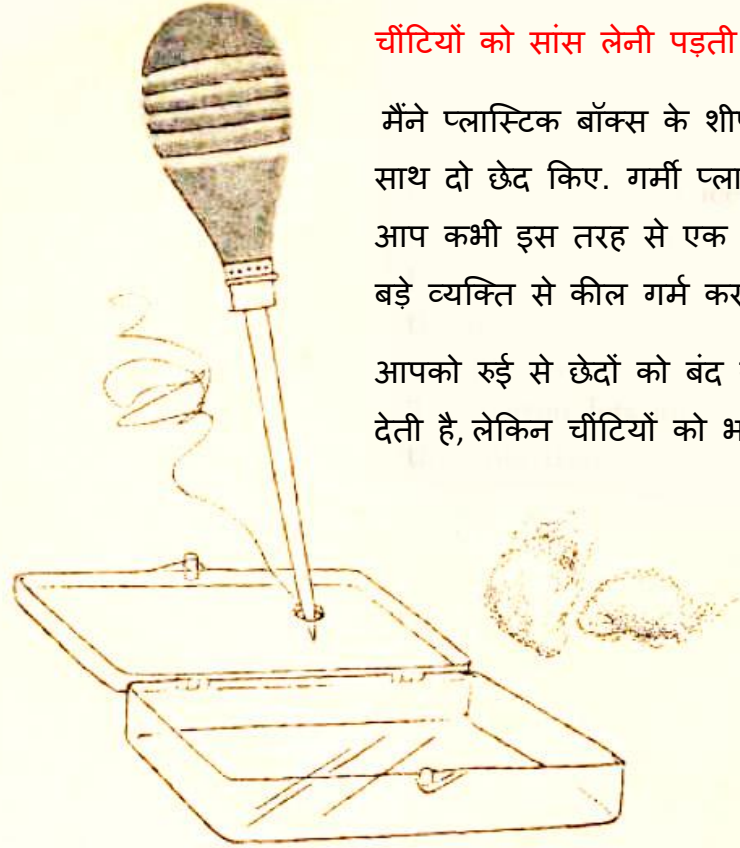 चींटियों को सांस लेनी पड़ती
मैंने प्लास्टिक बॉक्स के
साथ दो छेद किए. गर्मी
आप कभी इस तरह से एक
बड़े व्यक्ति से कील गर्म
आपको रुई से छेदों को बंद
देती है, लेकिन चींटियों को